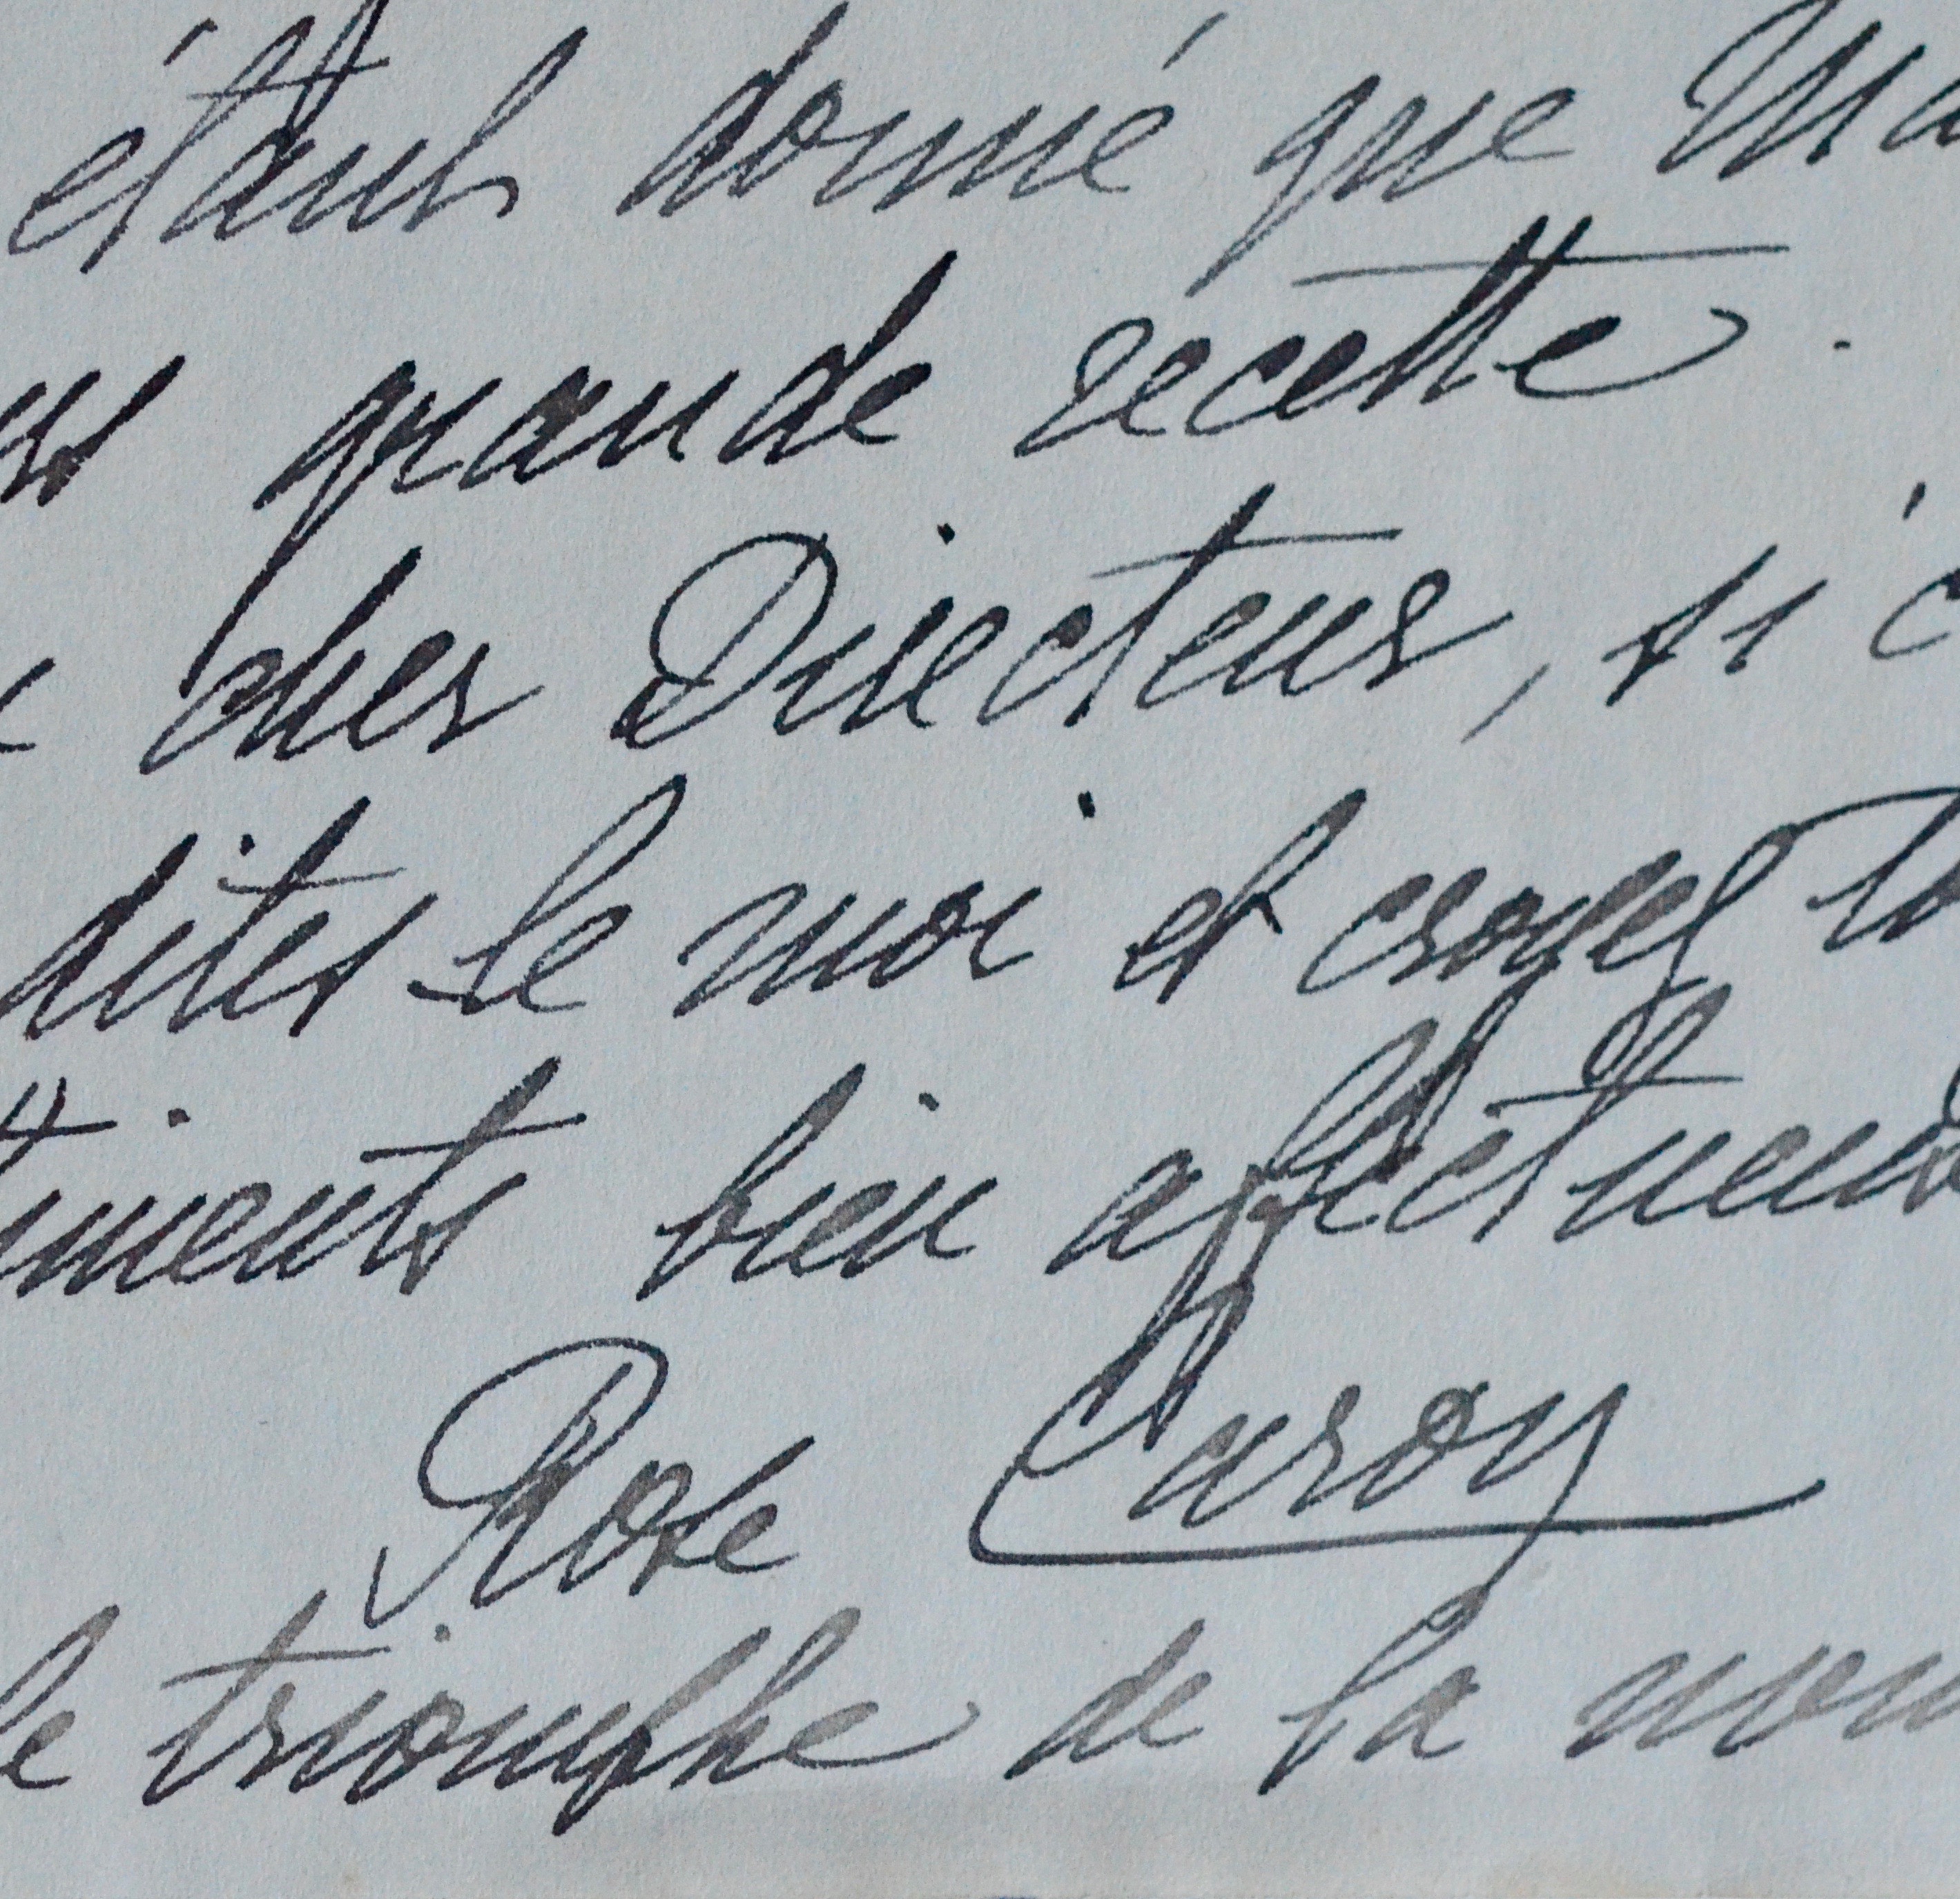 étant donné que
grande recette.
cher Directeur, si
dites-le moi et croyez
bien affectueux
Rose Caron
le triomphe de la